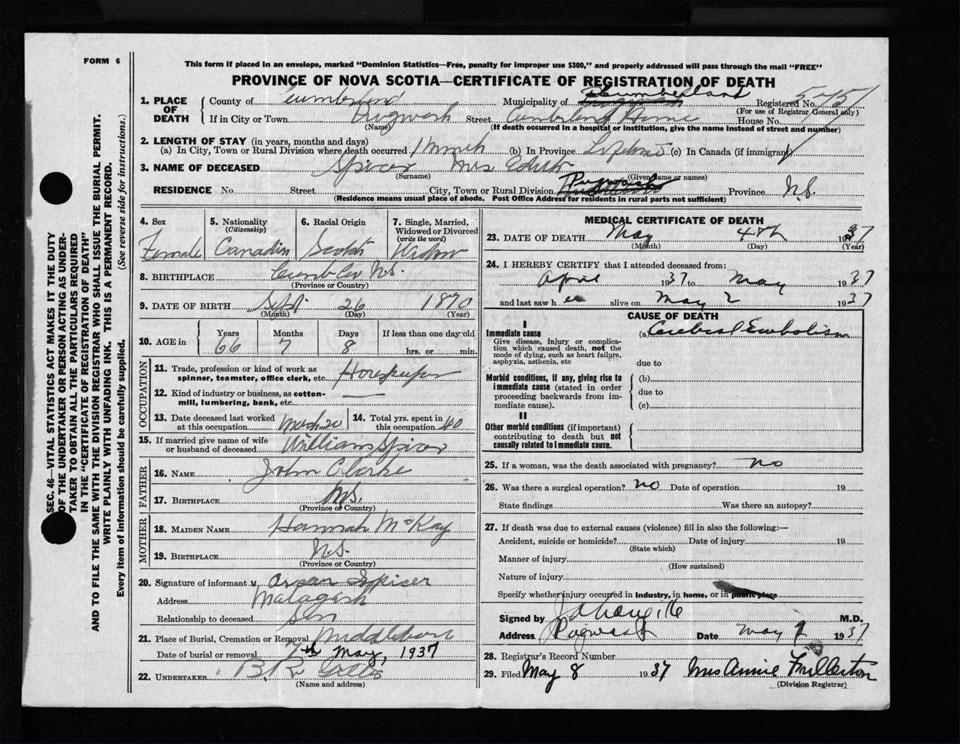 FORM 6
This form if placed in an envelope, marked "Dominion Statistics—Free, penalty for improper use $300," and properly addressed will pass through the mail "FREE"
PROVINCE OF NOVA SCOTIA—CERTIFICATE OF REGISTRATION OF DEATH
SEC. 46—VITAL STATISTICS ACT MAKES IT THE DUTY
OF THE UNDERTAKER OR PERSON ACTING AS UNDER-
TAKER TO OBTAIN ALL THE PARTICULARS REQUIRED
IN THE "CERTIFICATE OF REGISTRATION OF DEATH"
AND TO FILE THE SAME WITH THE DIVISION REGISTRAR WHO SHALL ISSUE THE BURIAL PERMIT.
WRITE PLAINLY WITH UNFADING INK. THIS IS A PERMANENT RECORD.
Every item of information should be carefully supplied. (See reverse side for instructions.)
1. PLACE OF DEATH County of Cumberland Municipality of Cumberland Registered No.
(For use of Registrar General only)
If in City or Town Pugwash Street Cumberland Home House No.
(Name) (If death occurred in a hospital or institution, give the name instead of street and number)
2. LENGTH OF STAY (in years, months and days)
(a) In City, Town or Rural Division where death occurred 1 Month (b) In Province Lifetime (c) In Canada (if immigrant)
3. NAME OF DECEASED Spicer Mrs Edith
(Surname) (Given name or names)
RESIDENCE No. Street City, Town or Rural Division Pugwash Province N.S.
(Residence means usual place of abode. Post Office Address for residents in rural parts not sufficient)
4. Sex Female
5. Nationality (Citizenship) Canadian
6. Racial Origin Scotch
7. Single, Married, Widowed or Divorced (write the word) Widow
8. BIRTHPLACE Cumb Co N.S.
(Province or Country)
9. DATE OF BIRTH Sept 26 1870
(Month) (Day) (Year)
10. AGE in Years 66 Months 7 Days 8 If less than one day old hrs. or min.
OCCUPATION
11. Trade, profession or kind of work as spinner, teamster, office clerk, etc. Housekeeper
12. Kind of industry or business, as cotton-mill, lumbering, bank, etc. —
13. Date deceased last worked at this occupation March 20
14. Total yrs. spent in this occupation 40
15. If married give name of wife or husband of deceased William Spicer
FATHER
16. NAME John Clarke
17. BIRTHPLACE N.S.
(Province or Country)
MOTHER
18. MAIDEN NAME Hannah McKay
19. BIRTHPLACE N.S.
(Province or Country)
20. Signature of informant Spicer
Address Malagash
Relationship to deceased Son
21. Place of Burial, Cremation or Removal
Date of burial or removal 7th May, 1937
22. UNDERTAKER
(Name and address)
MEDICAL CERTIFICATE OF DEATH
23. DATE OF DEATH May 4th 1937
(Month) (Day)
24. I HEREBY CERTIFY that I attended deceased from:
April 1937 to May 1937
and last saw her alive on May 2 1937
CAUSE OF DEATH
I
Immediate cause (a) Cerebral Embolism
Give disease, injury or complica-
tion which caused death, not the
mode of dying, such as heart failure,
asphyxia, asthenia, etc
due to
Morbid conditions, if any, giving rise to (b)
immediate cause (stated in order due to
proceeding backwards from im-
mediate cause). (c)
II
Other morbid conditions (if important)
contributing to death but not
causally related to immediate cause.
25. If a woman, was the death associated with pregnancy? no
26. Was there a surgical operation? no Date of operation 19
State findings Was there an autopsy?
27. If death was due to external causes (violence) fill in also the following:—
Accident, suicide or homicide? Date of injury 19
(State which)
Manner of injury
(How sustained)
Nature of injury
Specify whether injury occurred in industry, in home, or in public place
Signed by M.D.
Address Pugwash Date May 1937
28. Registrar's Record Number
29. Filed May 8 1937 Mrs Annie Fullerton
(Division Registrar)